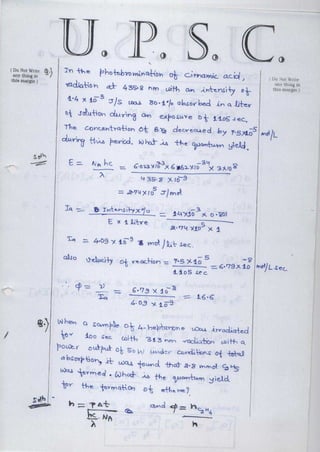 U.P.S.C.
( Do Not Write
any thing in
this margin )
( Do Not Write
any thing in
this margin )
Q.) In the photobromination of cinnamic acid,
radiation at 435.8 nm with an intensity of
1.4 x 10⁻³ J/s was 80.1% absorbed in a liter
of solution during an exposure of 1105 sec.
The concentration of Br₂ decreased by 7.5x10⁻⁵ mol/L
during this period. What is the quantum yield.
Soln
E = NA hc / λ = 6.022x10²³ x 6.62x10⁻³⁴ x 3x10⁸ / 435.8 x 10⁻⁹
= 2.74x10⁵ J/mol
Ia = Intensity x % / E x 1 litre = 1.4x10⁻³ x 0.801 / 2.74x10⁵ x 1
Ia = 4.09 x 10⁻⁹ mol/lit sec.
also velocity of reaction = 7.5 x 10⁻⁵ / 1105 sec = 6.79x10⁻⁸ mol/L sec.
∴ φ = v / Ia = 6.79 x 10⁻⁸ / 4.09 x 10⁻⁹ = 16.6
Q.) When a sample of 4-heptanone was irradiated
for 100 sec with 313 nm radiation with a
power output of 50 W under conditions of total
absorption, it was found that 2.8 mmol C₂H₄
was formed. What is the quantum yield
for the formation of ethene?
Soln
n = P∆t / (hc/λ) NA and φ = nC₂H₄ / n